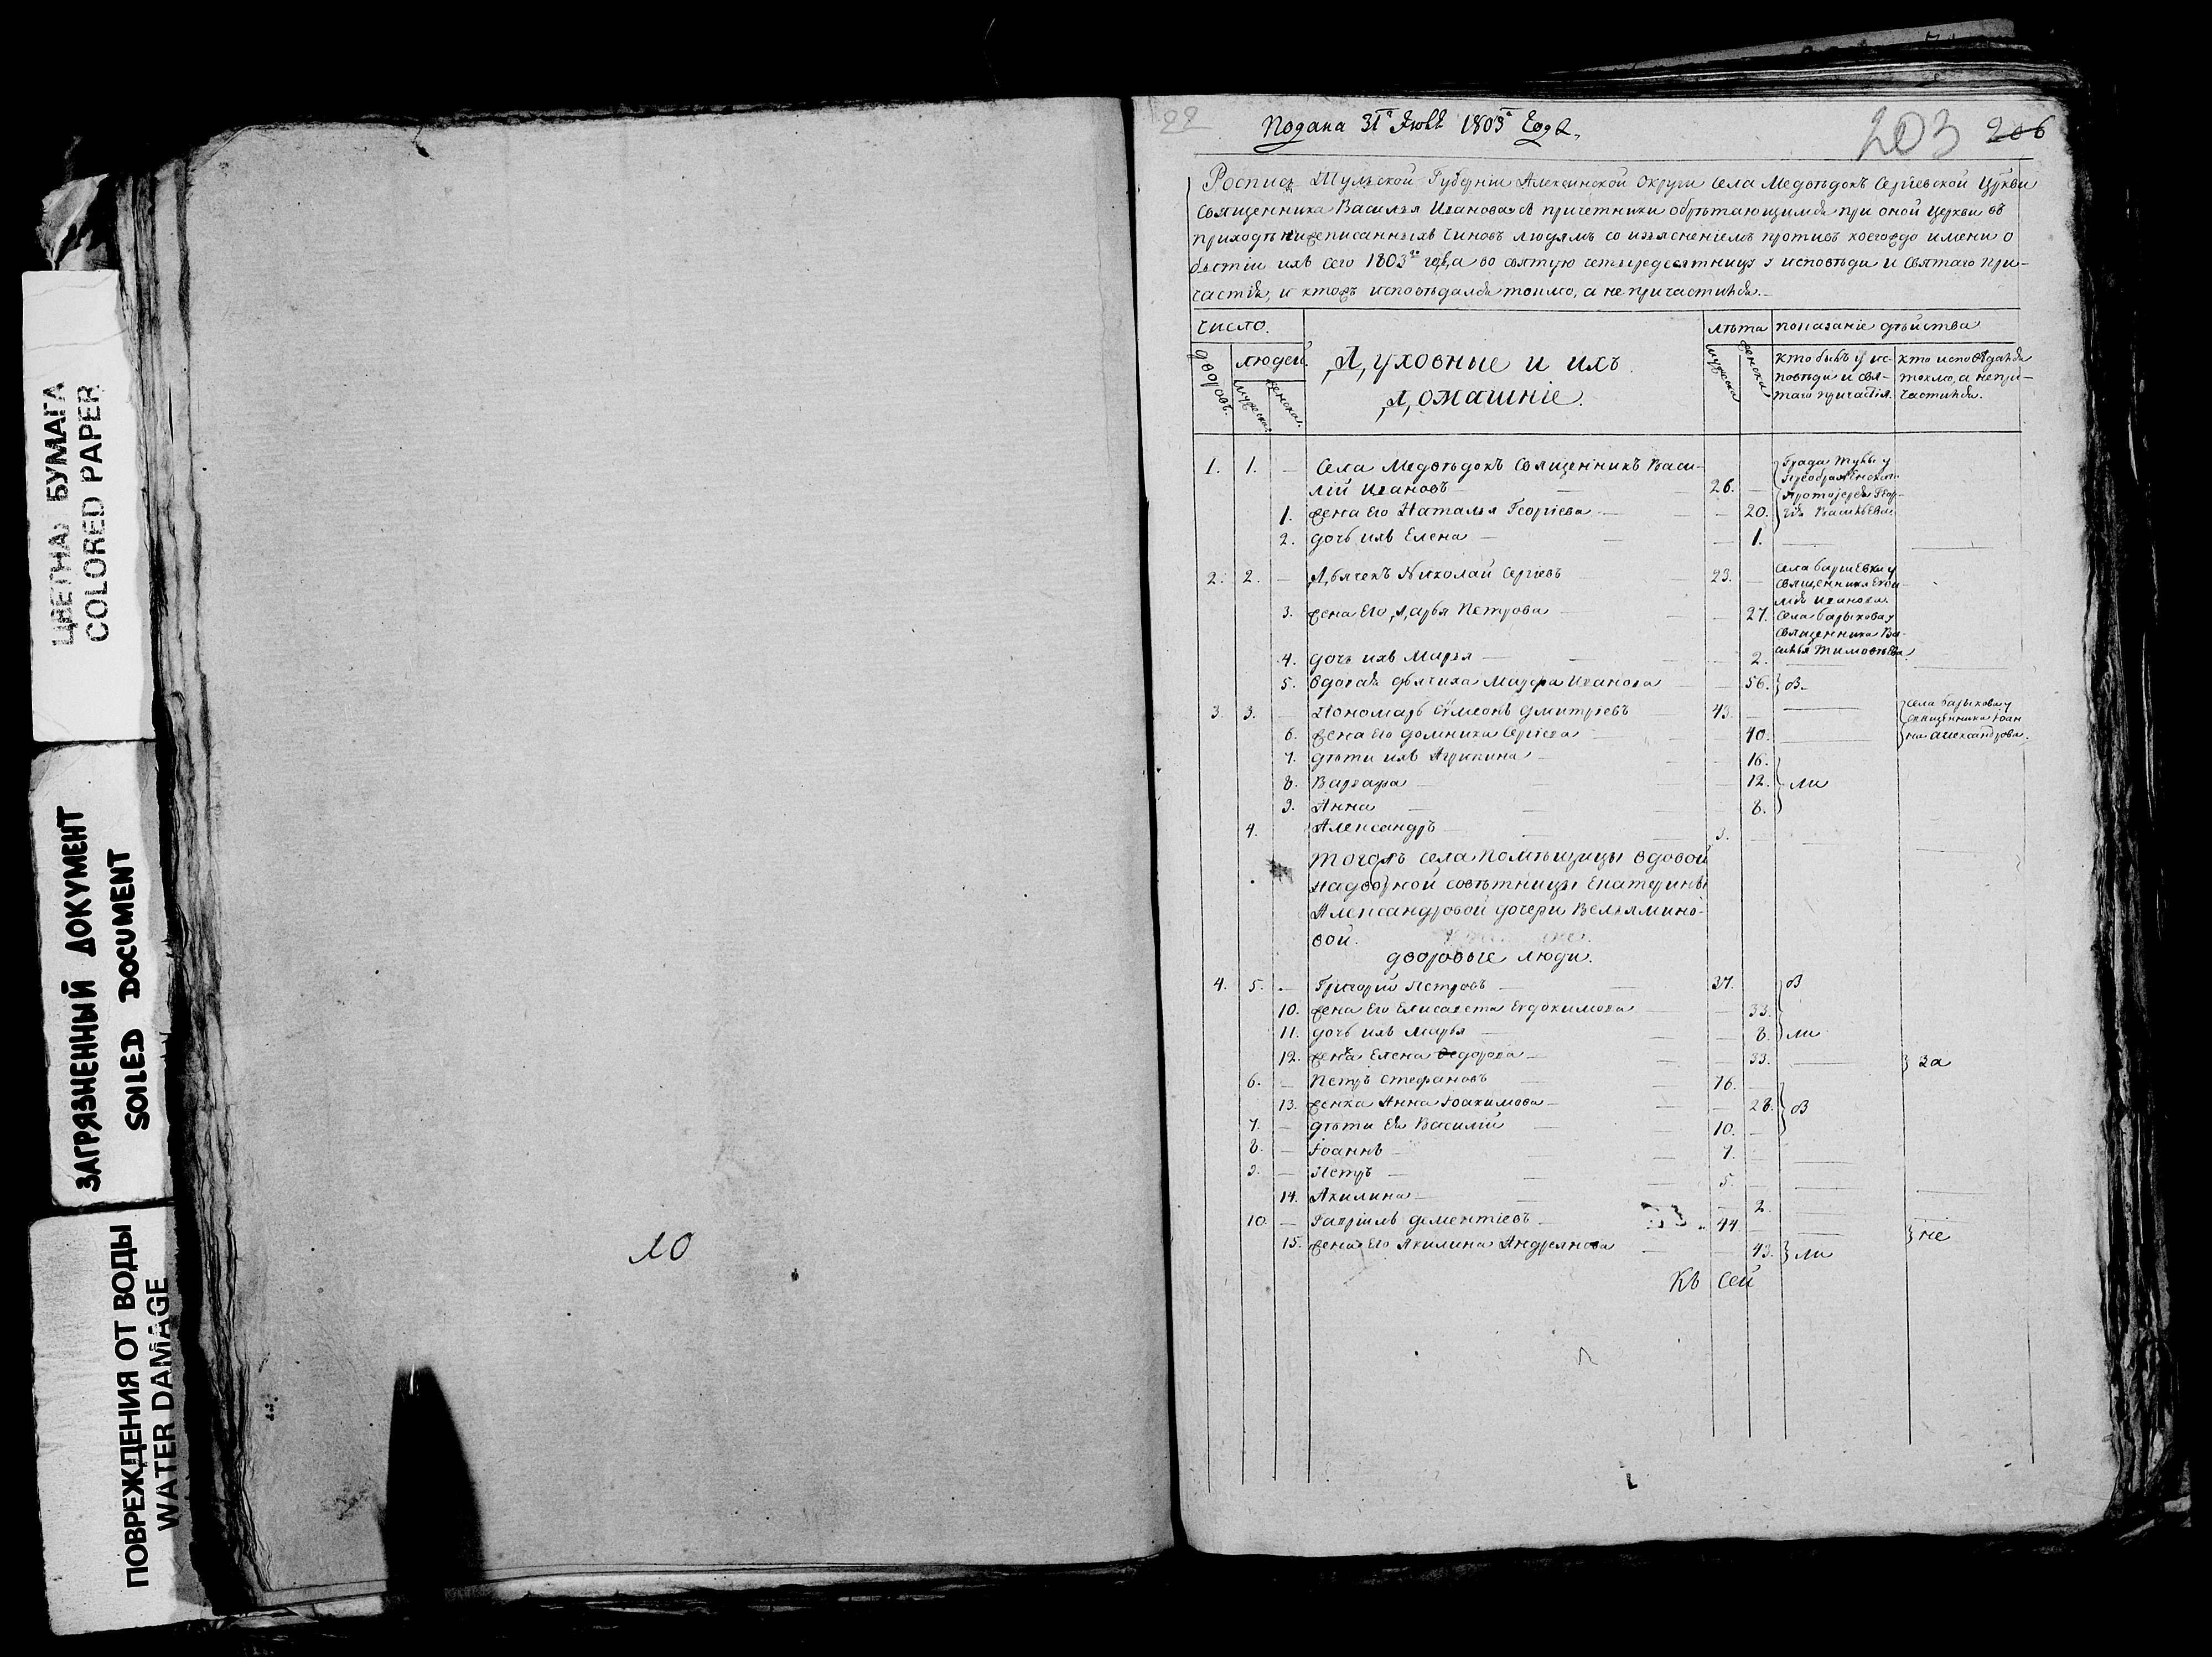 ЦВЕТНАЯ БУМАГА
COLORED PAPER
ЗАГРЯЗНЕННЫЙ ДОКУМЕНТ
SOILED DOCUMENT
ПОВРЕЖДЕНИЯ ОТ ВОДЫ
WATER DAMAGE
10
22
Подана 31го 1803го года
203 206
Роспись Тульской Губерніи Алексинской Округи села Медвѣдокъ Сергіевской Цркви
священника Василья Иванова съ причетники обрѣтающимся при оной церкви въ
приходѣ нижеписанныхъ чиновъ людямъ со изъясненіемъ противъ коегождо имени о
бытіи ихъ сего 1803го года во святую четыредесятницу у исповѣди и святаго при-
частія, и ктожъ исповѣдался токмо, а не причастился.
число.
лѣта показаніе дѣйства
дворовъ.
людей.
мужеска. женска.
Духовные и ихъ
Домашніе.
мужеска женска
кто былъ у ис-
повѣди и свя-
таго причастія.
кто исповѣдался
токмо, а непри-
частился.
1. 1. — Села Медвѣдокъ Священникъ Васи-
лій Ивановъ — 26. —
Града Тулы у
Преображенскаго
Протоіерея Геор-
гія Васильева
1. жена его Наталья Георгіева — 20.
2. дочь ихъ Елена — 1.
2. 2. — Дьячекъ Николай Сергіевъ 23. —
села
священника
Иванова
3. жена его Дарья Петрова — 27.
села Барыкова у
священника Ва-
силья Тимоѳѣева
4. дочь ихъ Марья — 2.
5. вдовая дьячиха Мавра Иванова — 56. } в
3. 3. — Пономарь Сѵмеонъ Дмитріевъ 43. —
села Барыкова у
священника Іоан
на Александрова.
6. жена его Домника Сергіева 40.
7. дѣти ихъ Агрипина — 16.
8. Варвара — 12. } ли
9. Анна — 8.
4. Александръ — 3.
Тогожъ села помѣщицы вдовой
надворной совѣтницы Екатерины
Александровой дочери Вельямино-
вой.
дворовые люди.
4. 5. — Григорій Петровъ — 37. } в
10. жена его Елисавета Евдокимова — 33.
11. дочь ихъ Марья — 8. } ли
12. женка Елена Ѳедорова — 33. } за
6. — Петръ Стефановъ 16. —
13. женка Анна Іоакимова — 28. } в
7. — дѣти ея Василій 10. —
8. — Іоаннъ — 7. —
9. — Петръ — 5. —
14. Акилина — 2.
10. — Гавріилъ Дементіевъ 44. —
} не
15. жена его Акилина Андреянова 43. } ли
Къ сей